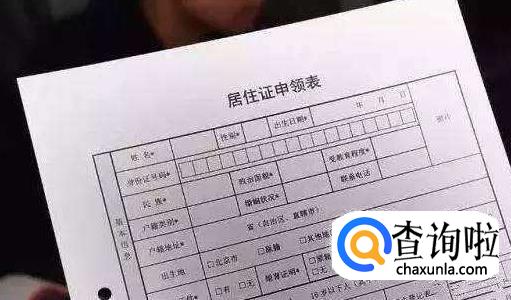 居住证申领表
姓名* 性别* 出生日期* 年 月 日 照片
身份证号码*
民族* 政治面貌* 受教育程度*
户籍类别* 婚姻状况* 联系电话*
户籍地址* 省(自治区、直辖市)
出生地 □北京市
□有 □无 婚育证明*
基本信息
16岁以下人
查询啦
chaxunla.com